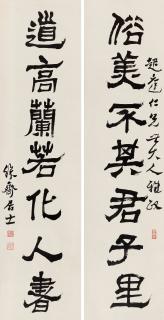 俗美不其君子里
超蘧仁兄世大人雅政
道高蘭若化人書
保齋居士